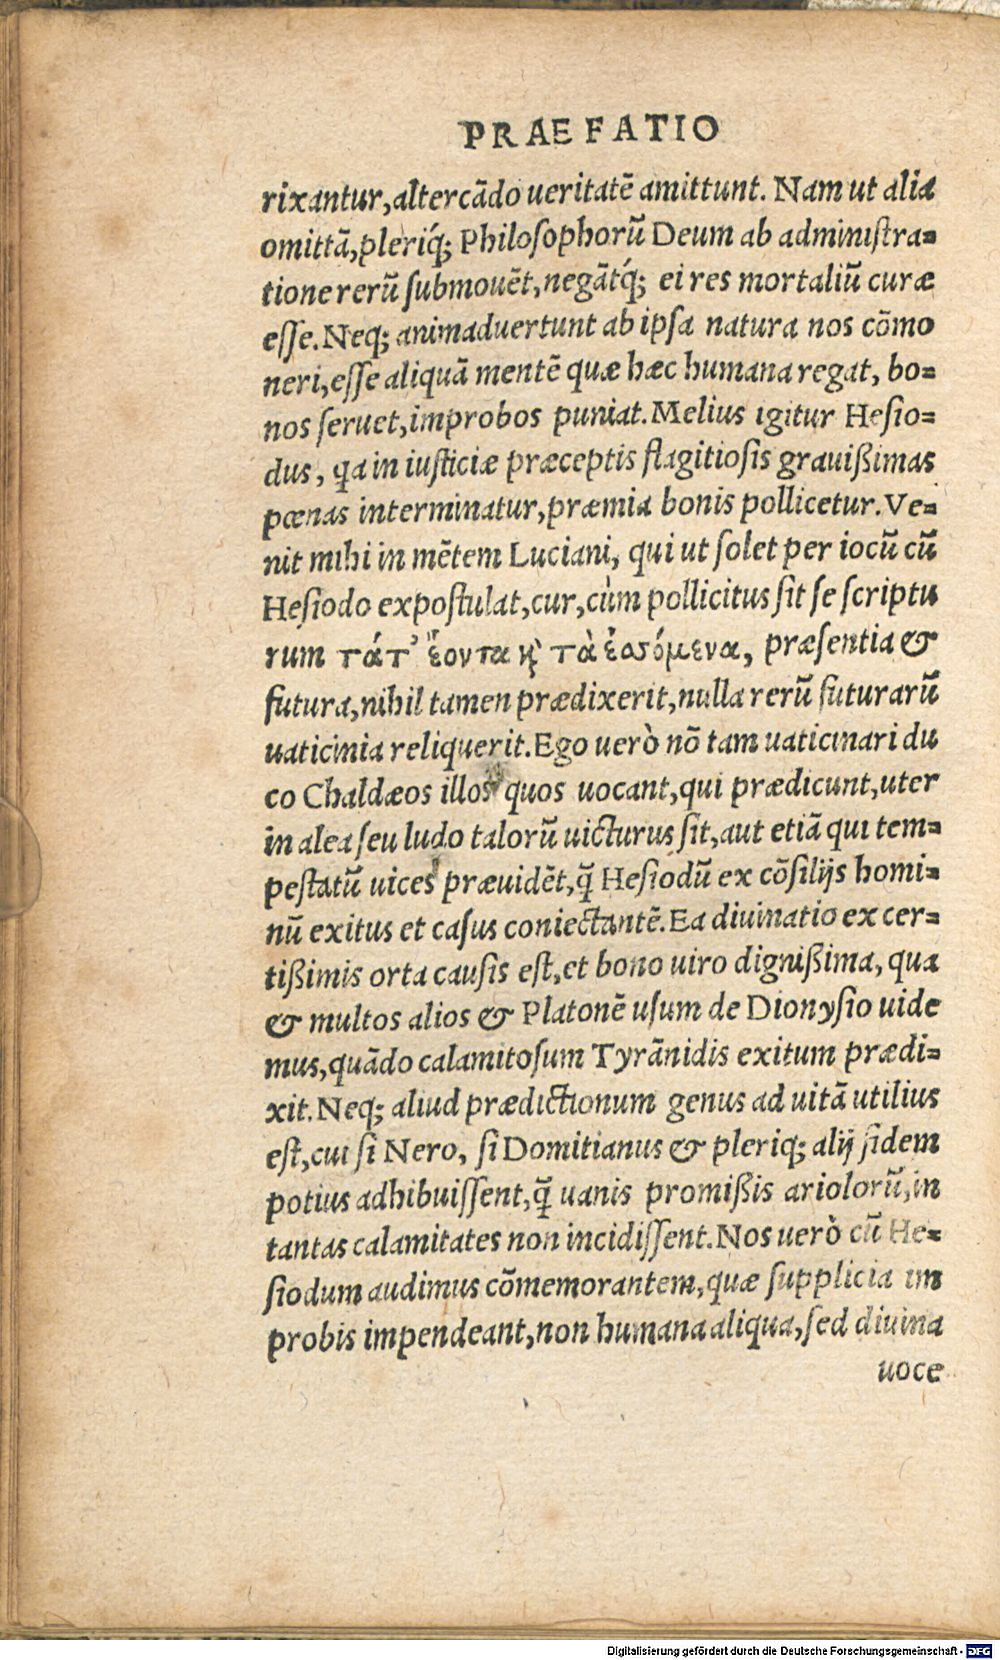 PRAEFATIO
rixantur,altercãdo ueritatẽ amittunt. Nam ut alia
omittã,pleriq́; Philosophorũ Deum ab administra=
tione rerũ submouẽt,negãtq́; ei res mortaliũ curæ
esse. Neq; animaduertunt ab ipsa natura nos cõmo
neri,esse aliquã mentẽ quæ hæc humana regat, bo=
nos seruet,improbos puniat. Melius igitur Hesio=
dus, qa in iusticiæ præceptis flagitiosis grauißimas
pœnas interminatur,præmia bonis pollicetur. Ve=
nit mihi in mẽtem Luciani, qui ut solet per iocũ cũ
Hesiodo expostulat,cur,cùm pollicitus sit se scriptu
rum τάτ᾽ ἔοντα ϗ̀ τὰ ἐσόμενα, præsentia &
futura,nihil tamen prædixerit,nulla rerũ futurarũ
uaticinia reliquerit. Ego uerò nõ tam uaticinari du
co Chaldæos illos quos uocant,qui prædicunt,uter
in alea seu ludo talorũ uicturus sit,aut etiã qui tem=
pestatũ uices præuidẽt,q̃ Hesiodũ ex cõsilijs homi=
nũ exitus et casus coniectantẽ. Ea diuinatio ex cer=
tißimis orta causis est,et bono uiro dignißima, qua
& multos alios & Platonẽ usum de Dionysio uide
mus,quãdo calamitosum Tyrãnidis exitum prædi=
xit. Neq; aliud prædictionum genus ad uitã utilius
est,cui si Nero, si Domitianus & pleriq; alij fidem
potius adhibuissent,q̃ uanis promißis ariolorũ,in
tantas calamitates non incidissent. Nos uerò cũ He=
siodum audimus cõmemorantem,quæ supplicia im
probis impendeant,non humana aliqua,sed diuina
uoce
Digitalisierung gefördert durch die Deutsche Forschungsgemeinschaft - DFG